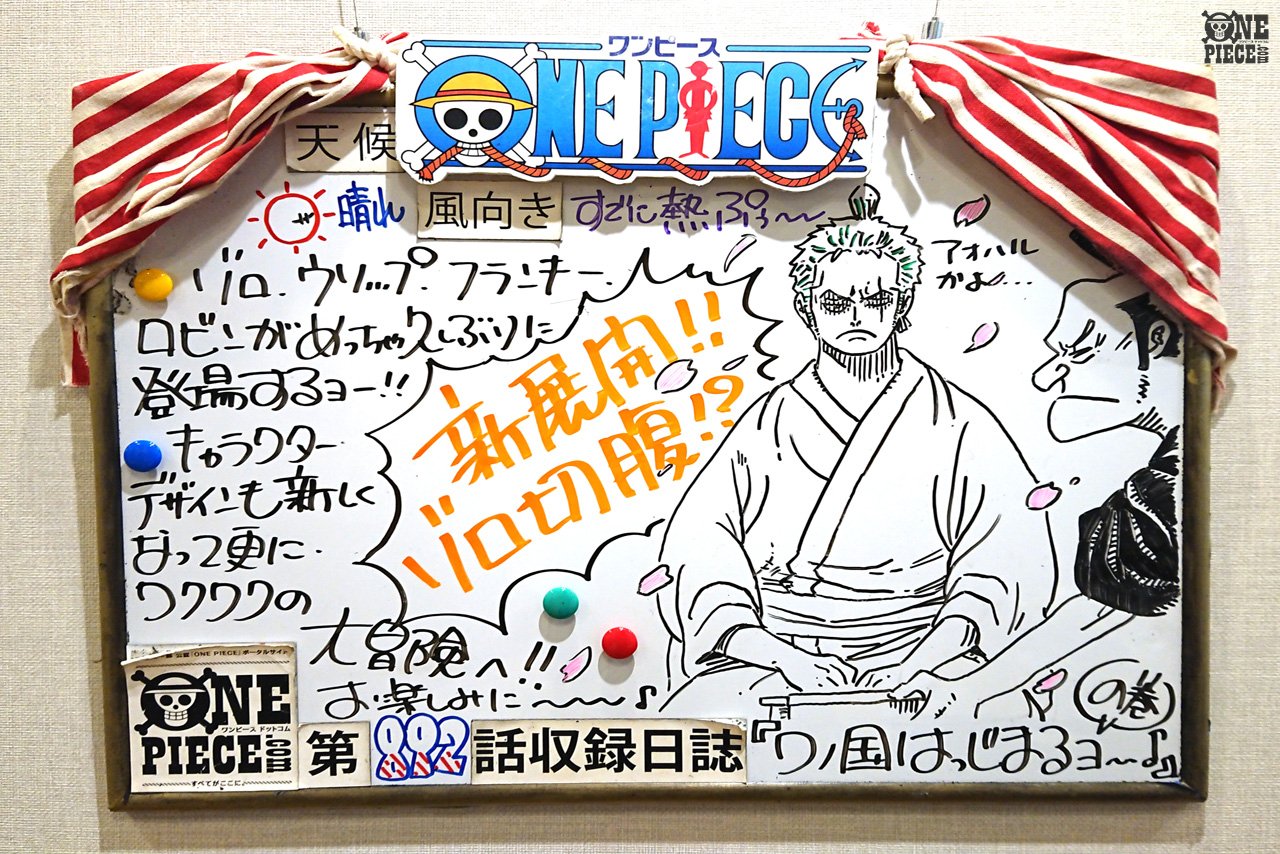 ONE PIECE.com
ワンピース ドットコム
ワンピース
ONE PIECE
天候
晴れ
風向き
すでに熱っぷぅ〜
アオハル
かよ…
ゾロ、ウソップ、フランキー、
ロビンがめっちゃ久しぶりに
登場するヨー!!
キャラクター
デザインも新しく
なって更に
ワクワクの
大冒険へ!!
お楽しみに〜〜♪
新展開!!
ゾロ切腹!?
公式『ONE PIECE』ポータルサイト
ONE PIECE.com
ワンピース ドットコム
すべてがここに。
第892話収録日誌
『ワノ国はっじまるヨ〜♪』
の巻